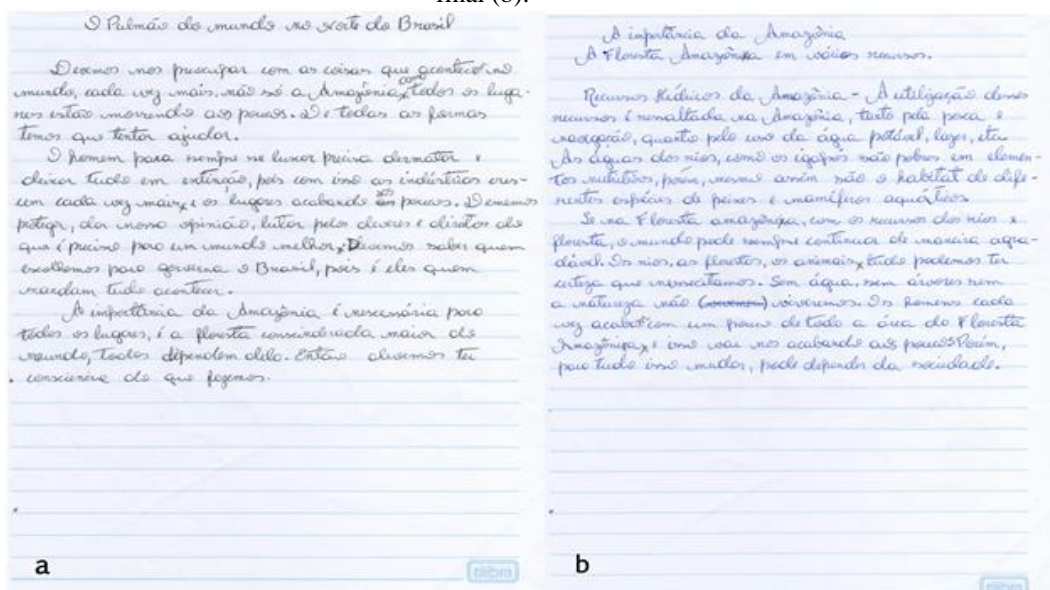 final (b).
O Pulmão do mundo no norte do Brasil
Devemos nos preocupar com as coisas que acontece no
mundo, cada vez mais, não só a Amazônia, todos os luga-
res estão morrendo aos poucos. De todas as formas
temos que tentar ajudar.
O homem para sempre se luxar precisa desmatar e
deixar tudo em extinção, pois com isso as indústrias cres-
cem cada vez mais, e os lugares acabando aos poucos. Devemos
proteger, dar nossa opinião, lutar pelos deveres e direitos do
que é preciso para um mundo melhor, Devemos saber quem
escolhemos para governa o Brasil, pois é eles quem
mandam tudo acontecer.
A importância da Amazônia é nescessária para
todos os lugares, é a floresta consindrada maior do
mundo, Todos dependem dela. Então devemos ter
consciência do que fazemos.
a
tilibra
A importância da Amazônia
A Floresta Amazônica em vários recursos.
Recursos Hídricos da Amazônia - A utilização desses
recursos é ressaltada na Amazônia, tanto pela pesca e
navegação, quanto pelo uso da água potável, lazer, etc.
As águas dos rios, como os igapós são pobres em elemen-
tos nutritivos, porém, mesmo assim são o habitat de dife-
rentes espécies de peixes e mamíferos aquáticos.
Se na Floresta amazônica, com os recursos dos rios e
floresta, o mundo pode sempre continuar de maneira agra-
dável. Os rios, as florestas, os animais, tudo podemos ter
certeza que nescessitamos. Sem água, sem árvores nem
a natureza não viveremos. Os homens cada
vez acabam com um pouco de toda a área da Floresta
Amazônica, e isso vai nos acabando aos poucos. Porém,
para tudo isso mudar, pode depender da sociedade.
b
tilibra